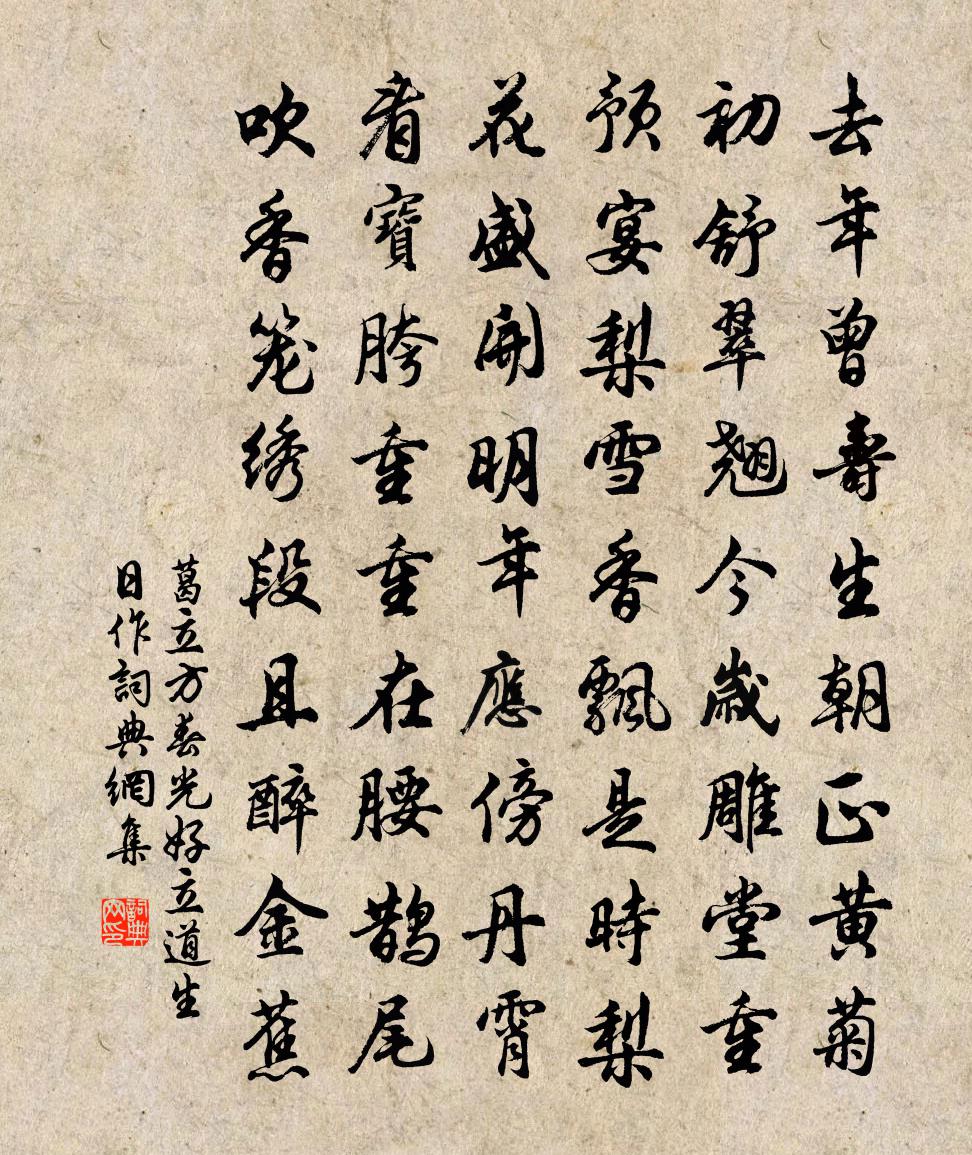 去年曾壽生朝正黃菊
初舒翠翹今歲雕堂重
預宴梨雪香飄是時梨
花盛開明年應傍丹霄
看寶胯重重在腰鵲尾
吹香笼绣段且醉金蕉
葛立方春光好立道生
日作詞典網集
詞典网印